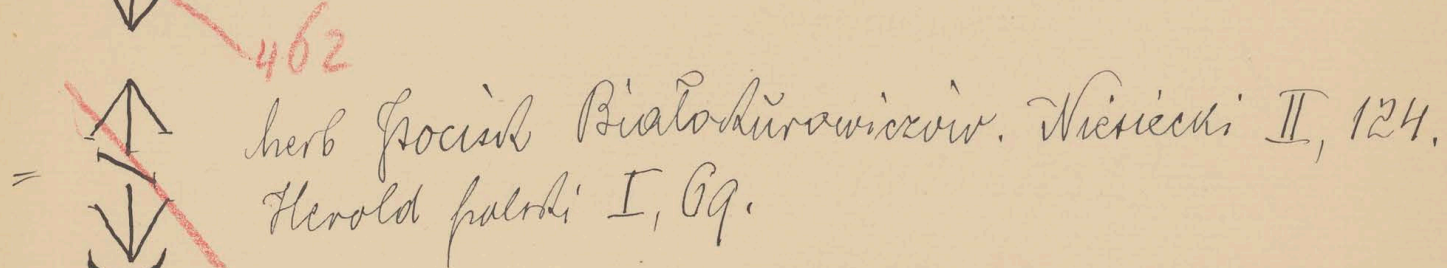 462
herb Pocisk Białokurowiczów. Niesiecki II, 124.
Herold polski I, 69.